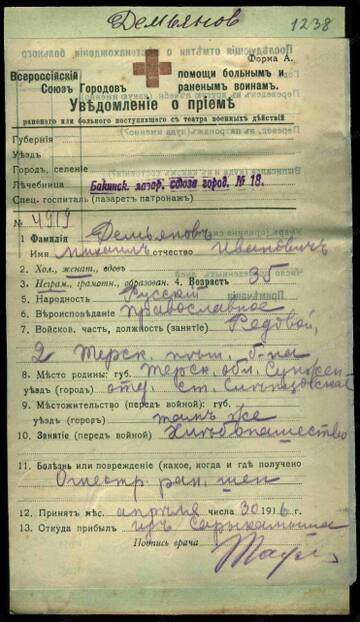 Демьянов 1238
Форма А.
Всероссійскій Союзъ Городовъ
помощи больнымъ и раненымъ воинамъ.
Увѣдомленіе о пріемѣ
раненаго или больного поступившаго съ театра военныхъ дѣйствій
Губернія
Уѣздъ
Городъ, селеніе
Лѣчебница Бакинск. лазар. союза город. № 18.
Спец. госпиталь (лазаретъ патронажъ)
№ 4919
1 Фамилія Демьяновъ
Имя Михаилъ отчество Ивановичъ
2. Хол., женат., вдовъ
3. Неграм., грамотн., образован. 4. Возрастъ 35
5. Народность Русскій
6. Вѣроисповѣданіе Православное
7. Войсков. часть, должность (занятіе) Рядовой,
2 Терск. пласт. б-на
8. Мѣсто родины: губ. Терск. обл. Сунжен-
уѣздъ (городъ) отд. ст. Слѣпцовская
9. Мѣстожительство (передъ войной): губ.
уѣздъ (городъ) тамъ же
10. Занятіе (передъ войной) Хлѣбопашество
11. Болѣзнь или поврежденіе (какое, когда и гдѣ получено
Огнестр. ран. шеи
12. Принятъ мѣс. апрѣля числа 30 1916 г.
13. Откуда прибылъ изъ Сарыкамыша
Подпись врача